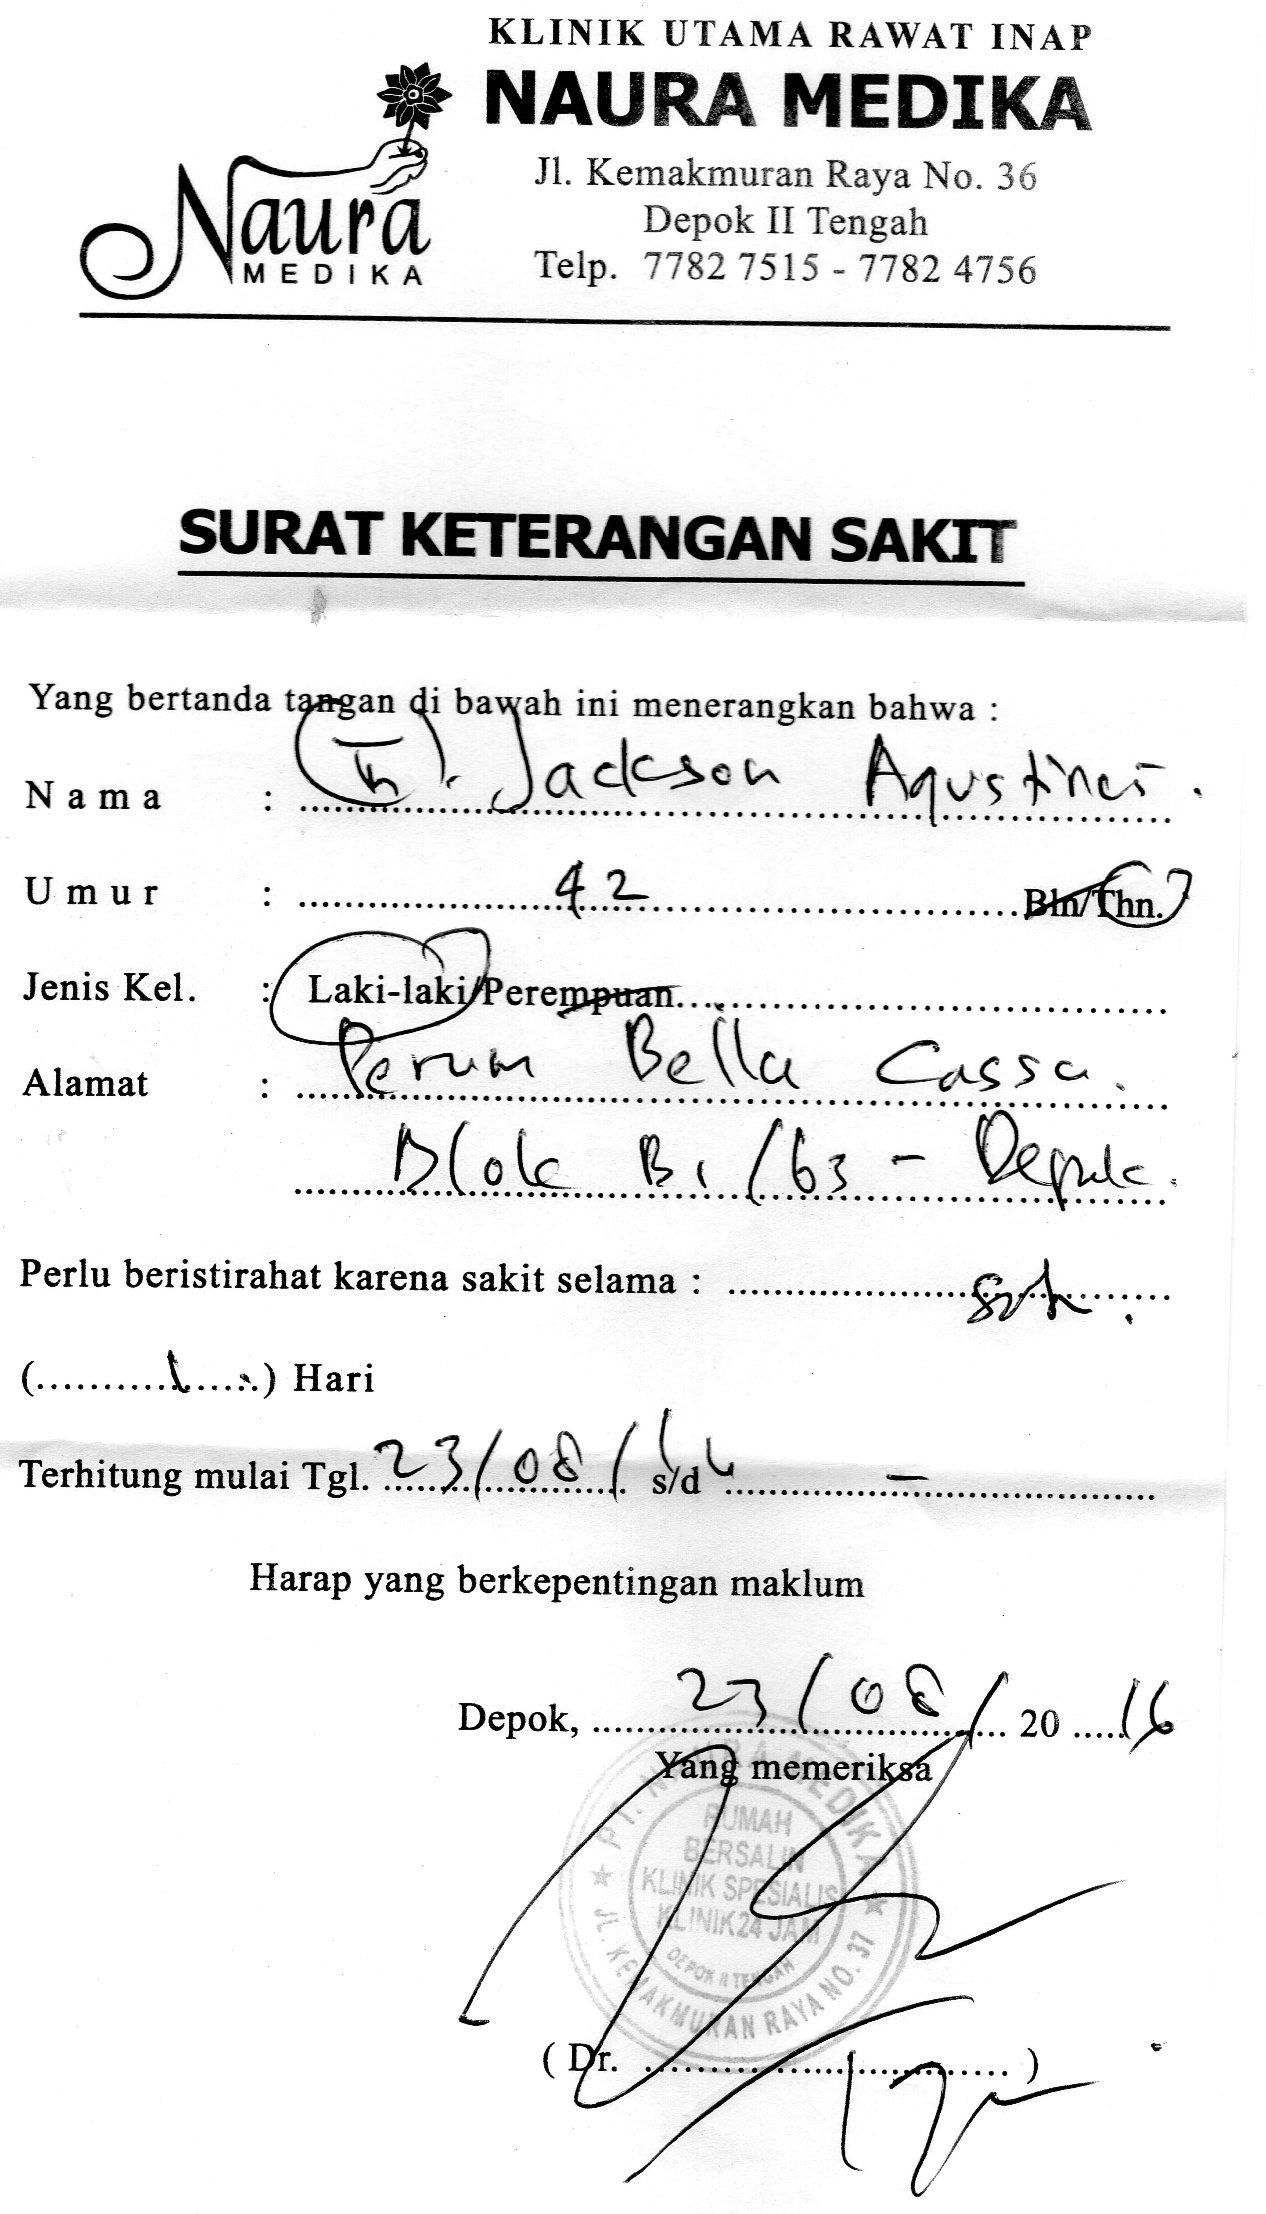 KLINIK UTAMA RAWAT INAP
NAURA MEDIKA
Naura
MEDIKA
Jl. Kemakmuran Raya No. 36
Depok II Tengah
Telp. 7782 7515 - 7782 4756
SURAT KETERANGAN SAKIT
Yang bertanda tangan di bawah ini menerangkan bahwa :
Nama : Tn. Jackson
Umur : 42 Bln/Thn.
Jenis Kel. : Laki-laki/Perempuan
Alamat : Perum Bella Cassa.
Blok B1/63 - Depok.
Perlu beristirahat karena sakit selama :
(..........1.....) Hari
Terhitung mulai Tgl. 23/08/16 s/d -
Harap yang berkepentingan maklum
Depok, 23/08/ 20 16
Yang memeriksa
PT. NAURA MEDIKA
RUMAH
BERSALIN
KLINIK SPESIALIS
KLINIK 24 JAM
DEPOK II TENGAH
JL. KEMAKMURAN RAYA NO. 37
( Dr. .................................. )